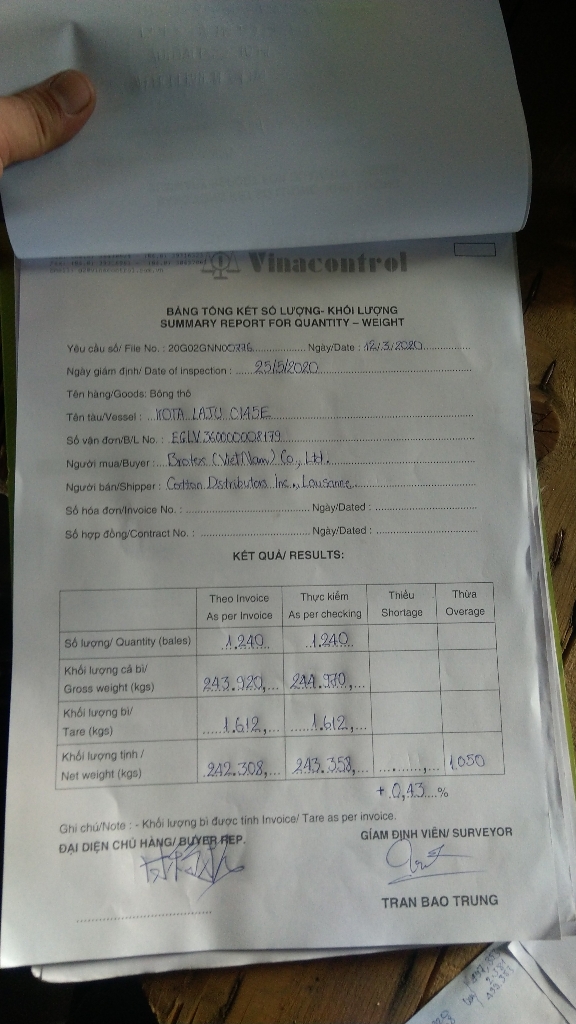 Vinacontrol
BẢNG TỔNG KẾT SỐ LƯỢNG- KHỐI LƯỢNG
SUMMARY REPORT FOR QUANTITY – WEIGHT
Yêu cầu số/ File No. : 20G02GNN00776 Ngày/Date : 12/3/2020
Ngày giám định/ Date of inspection : 25/5/2020
Tên hàng/Goods: Bông thô
Tên tàu/Vessel : KOTA LAJU C145E
Số vận đơn/B/L No. : EGLV360000008179
Người mua/Buyer : Brotex (VietNam) Co., Ltd.
Người bán/Shipper : Cotton Distributors Inc., Lausanne
Số hóa đơn/Invoice No. : Ngày/Dated :
Số hợp đồng/Contract No. : Ngày/Dated :
KẾT QUẢ/ RESULTS:
Theo Invoice Thực kiểm Thiếu Thừa
As per Invoice As per checking Shortage Overage
Số lượng/ Quantity (bales) 1.240 1.240
Khối lượng cả bì/
Gross weight (kgs) 243.920, 244.970,
Khối lượng bì/
Tare (kgs) 1.612, 1.612,
Khối lượng tịnh /
Net weight (kgs) 242.308, 243.358, , 1.050
+ 0,43 %
Ghi chú/Note : - Khối lượng bì được tính Invoice/ Tare as per invoice.
ĐẠI DIỆN CHỦ HÀNG/ BUYER REP. GIÁM ĐỊNH VIÊN/ SURVEYOR
TRAN BAO TRUNG